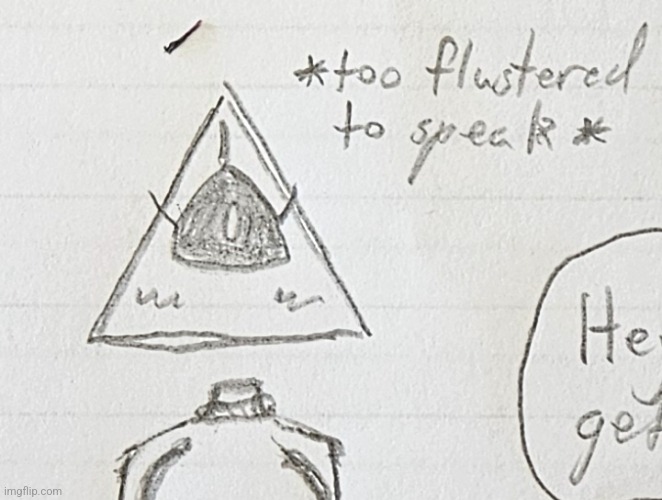 *too flustered
to speak*
Hey
get
imgflip.com